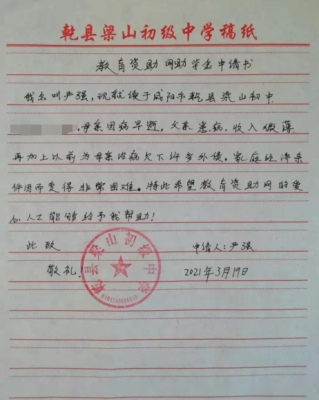 乾县梁山初级中学稿纸
教育资助网助学金申请书
我名叫尹强，现就读于咸阳市乾县梁山初中
母亲因病早逝，父亲患病，收入微薄
再加上以前为母亲治病欠下许多外债，家庭经济条
件因而变得非常困难。特此希望教育资助网的爱
心人士能够给予我帮助！
此致 申请人：尹强
敬礼！ 2021年3月19日
乾县梁山初级中学